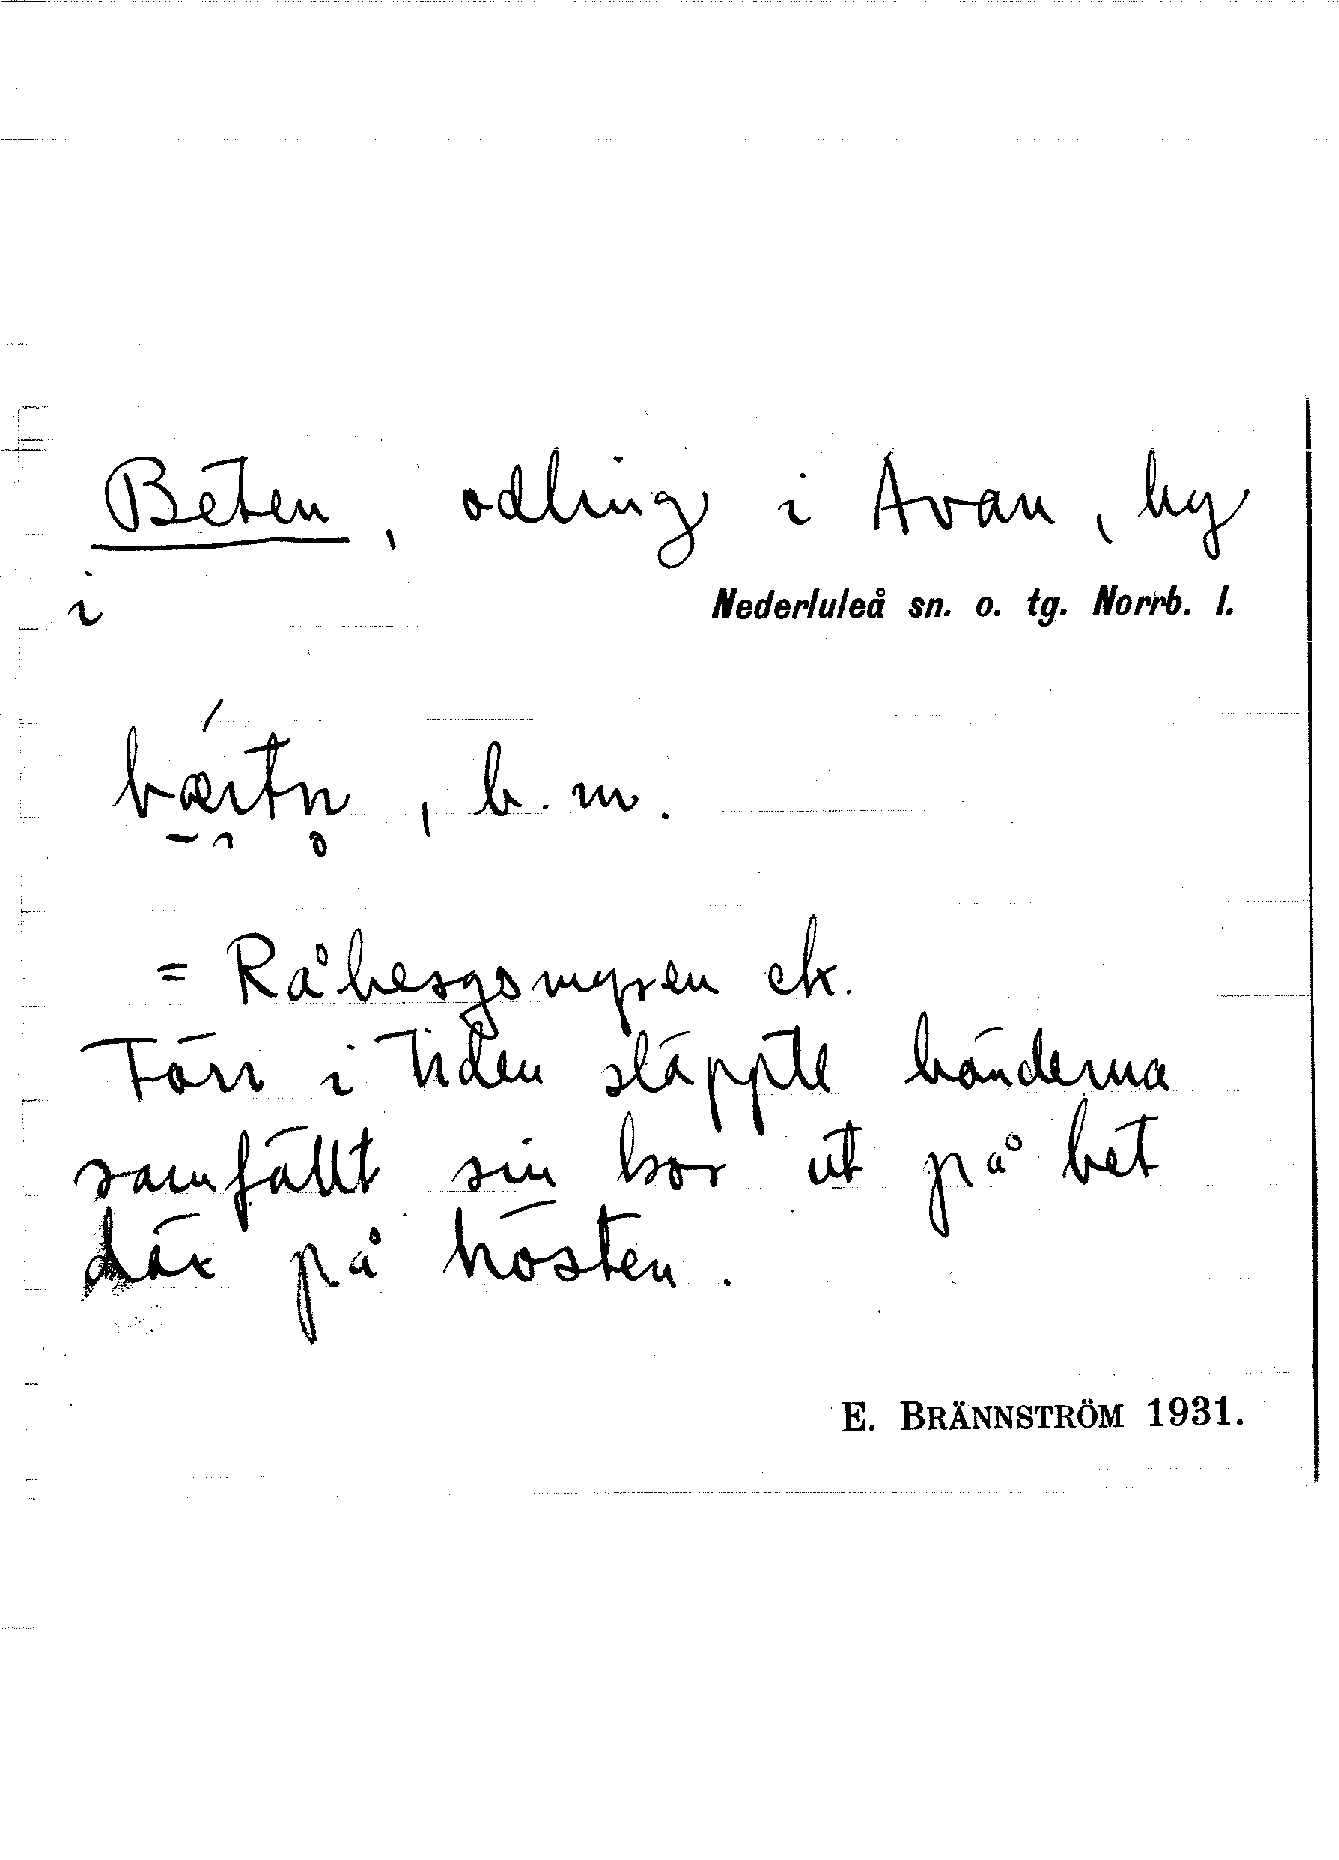 Beten, odling i Avan, by
i Nederluleå sn. o. tg. Norrb. l.
b. m.
= Råbergsmyren ek.
Förr i tiden släppte bönderna
samfällt sin kor ut på bet
där på hösten.
E. BRÄNNSTRÖM 1931.